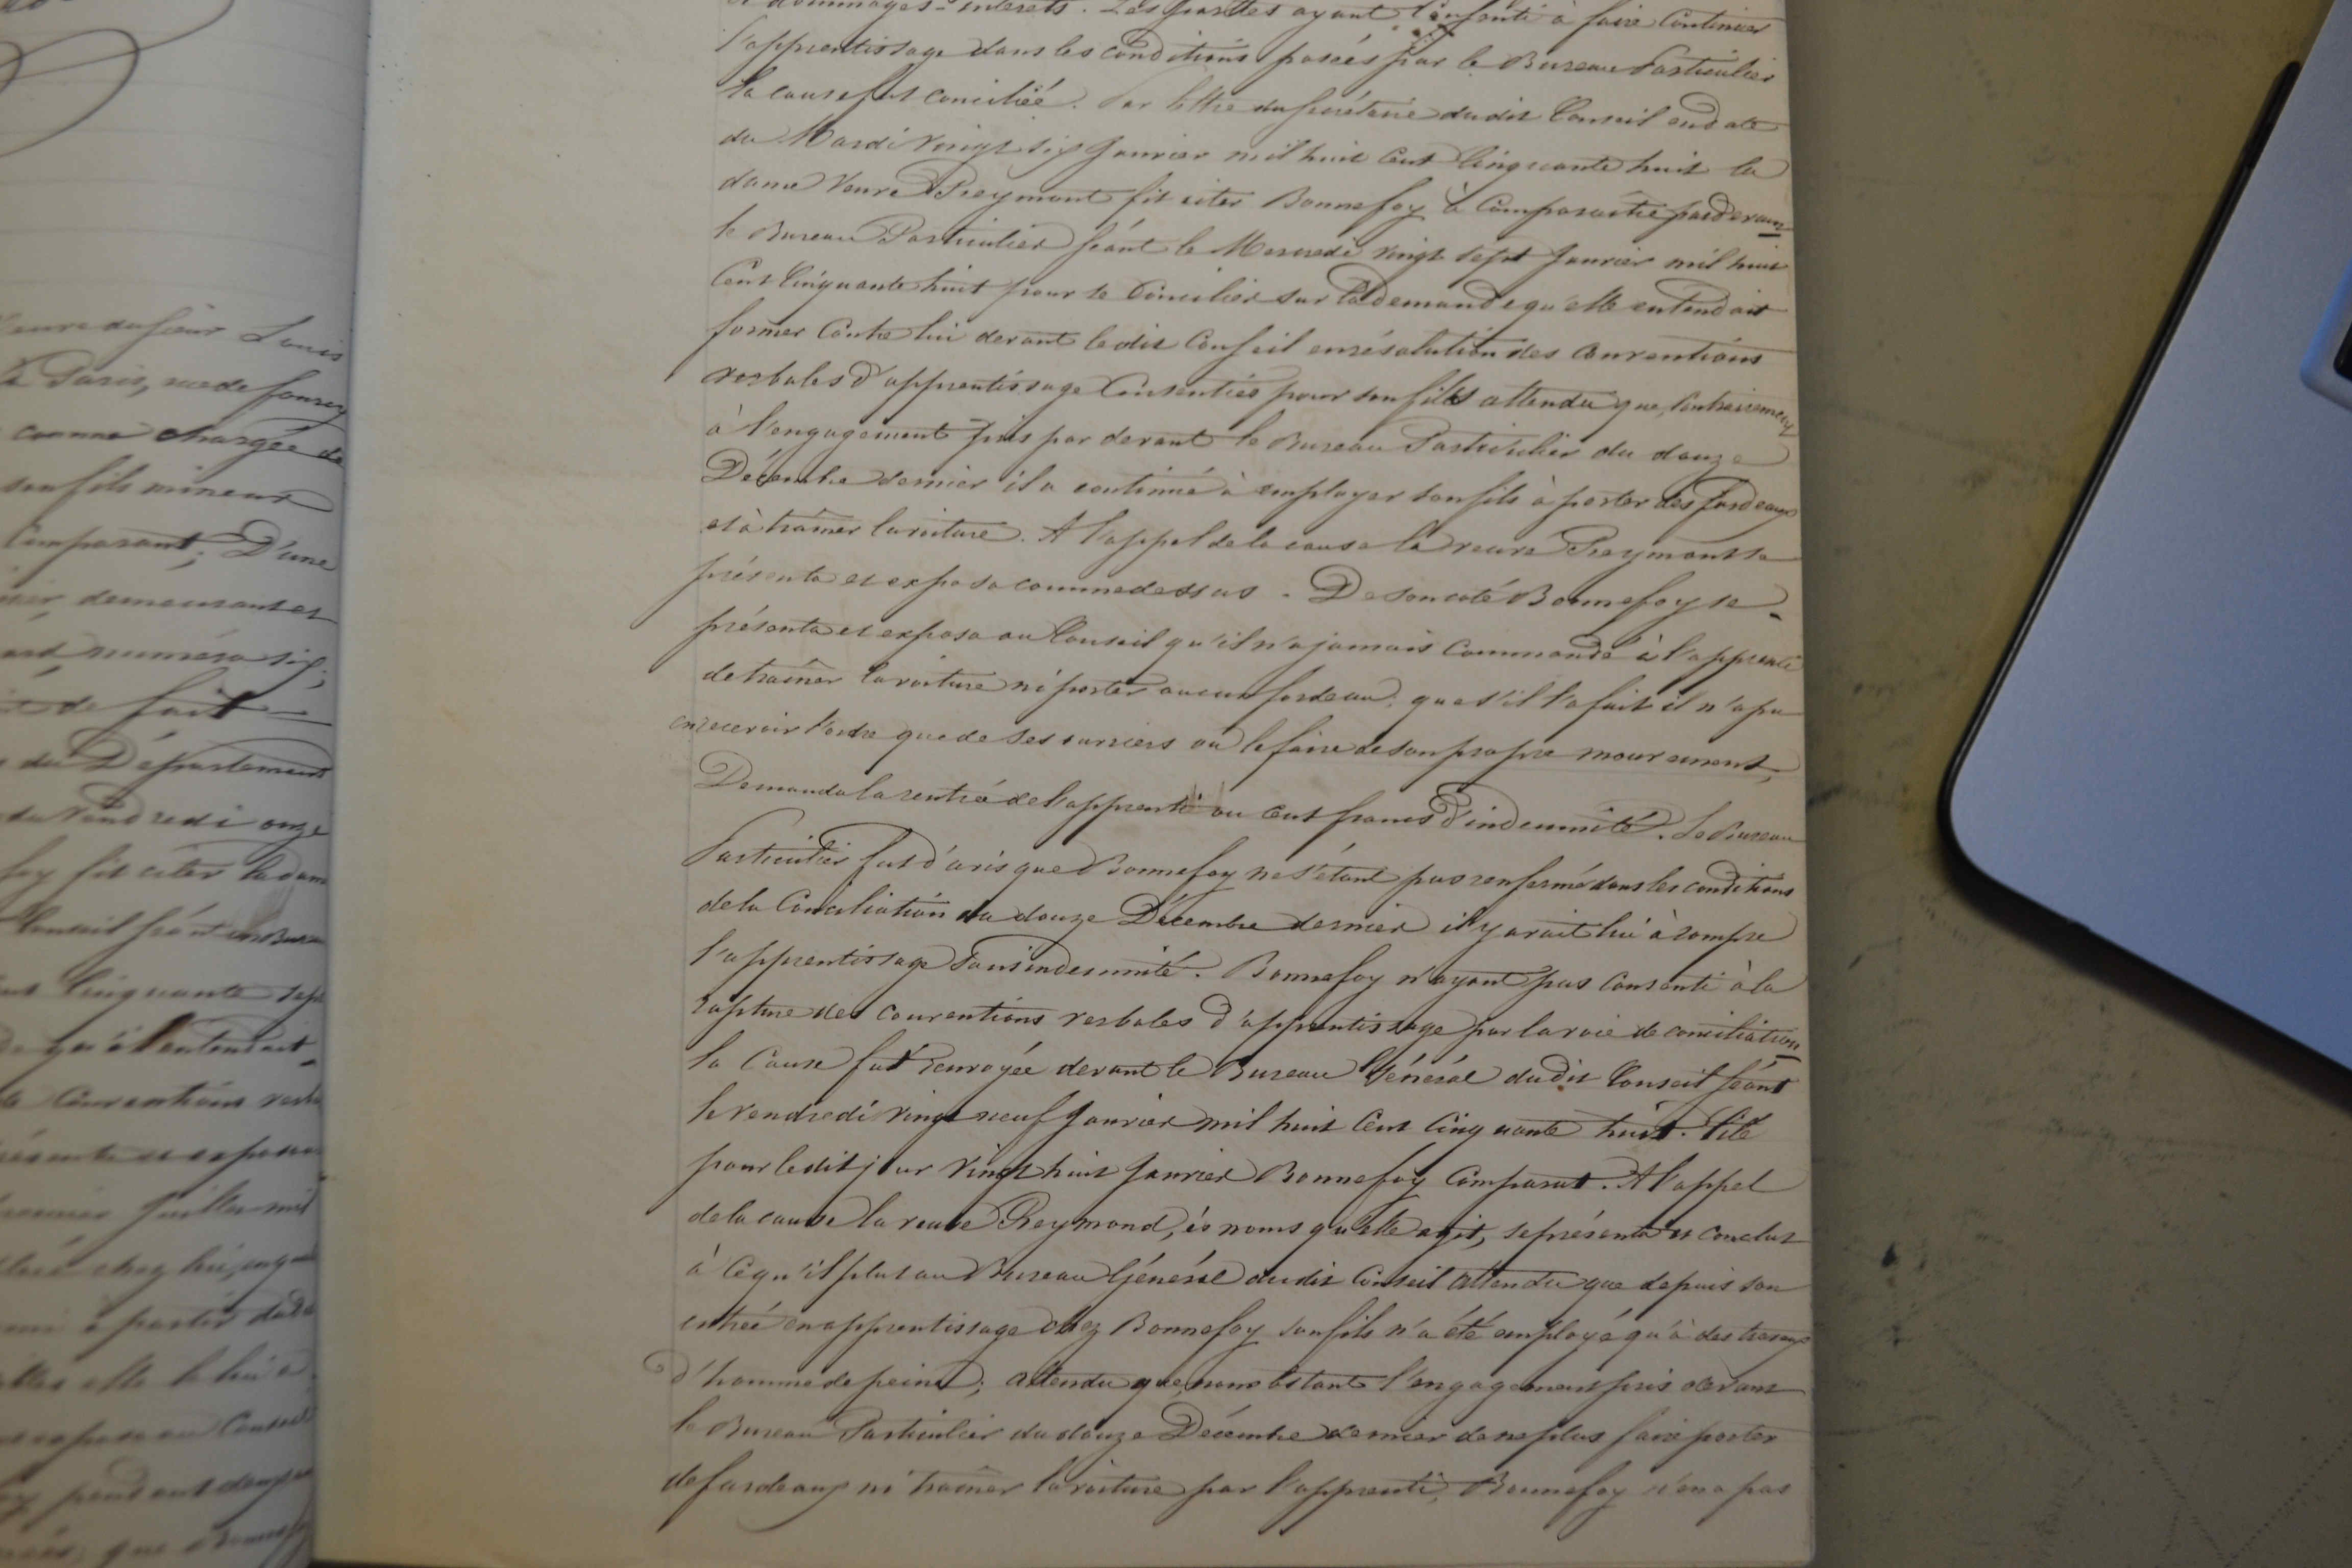 Louis
à Paris, rue de
comme chargée de
son fils mineur
Comparant; D'une
demeurant et
numéro six;
de fait
du Département
du Vendredi onze
fit citer la dame
Conseil séant
Cinquante sept
qu'il entendait
Conventions
Juillet mil
chez lui,
à partir du
elle le lui a
au Conseil
pendant
que
et dommages-intérêts. Les parties ayant consenti à faire continuer
l'apprentissage dans les conditions posées par le Bureau Particulier
la cause fut conciliée. Par lettre du secrétaire dudit Conseil en date
du Mardi vingt six Janvier mil huit cent cinquante huit la
dame Veuve Reymont fit citer Bonnefoy à Comparaître pardevant
le Bureau Particulier séant le Mercredi vingt sept Janvier mil huit
Cent Cinquante huit pour se Concilier sur la demande qu'elle entendait
former Contre lui devant ledit Conseil en résolution des Conventions
verbales d'apprentissage Consenties pour son fils attendu que, Contrairement
à l'engagement pris par devant le Bureau Particulier du douze
Décembre dernier il a continué à employer son fils à porter des fardeaux
et à traîner la voiture. A l'appel de la cause la veuve Reymont se
présenta et exposa comme dessus. De son côté Bonnefoy se
présenta et exposa au Conseil qu'il n'a jamais commandé à l'apprenti
de traîner la voiture ni porter aucun fardeau; que s'il l'a fait il n'a pu
en recevoir l'ordre que de ses ouvriers ou le faire de son propre mouvement;
Demanda la rentrée de l'apprenti ou cent francs d'indemnité. Le Bureau
Particulier fut d'avis que Bonnefoy ne s'étant pas renfermé dans les conditions
de la Conciliation du douze Décembre dernier il y avait lieu à rompre
l'apprentissage sans indemnité. Bonnefoy n'ayant pas Consenti à la
rupture des conventions verbales d'apprentissage par la voie de conciliation
la Cause fut renvoyée devant le Bureau Général dudit Conseil séant
le vendredi vingt neuf Janvier mil huit Cent Cinquante huit. Cité
pour ledit jour vingt huit Janvier Bonnefoy Comparut. A l'appel
de la cause la veuve Reymond, ès noms qu'elle agit, se présenta et conclut
à ce qu'il plut au Bureau Général dudit Conseil attendu que depuis son
entrée en apprentissage chez Bonnefoy son fils n'a été employé qu'à des travaux
d'homme de peine; attendu que, nonobstant l'engagement pris devant
le Bureau Particulier du douze Décembre dernier de ne plus faire porter
de fardeaux ni traîner la voiture par l'apprenti, Bonnefoy n'en a pas